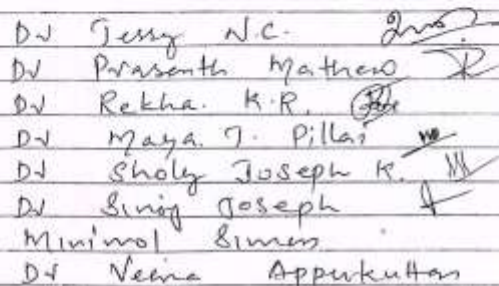 Dr Jessy N.C.
Dr Prasenth Mathew
Dr Rekha. K.R.
Dr Maya. J. Pillai
Dr Sholy Joseph K.
Dr Sinoj Joseph
Minimol
Dr Veena Appukuttan